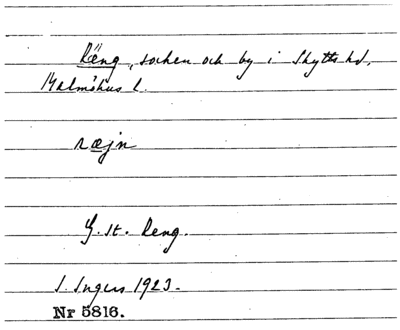 Räng, socken och by i Skytts hd,
Malmöhus l.
ræjn
G. st. Reng.
I. Ingers 1923.
Nr 5816.